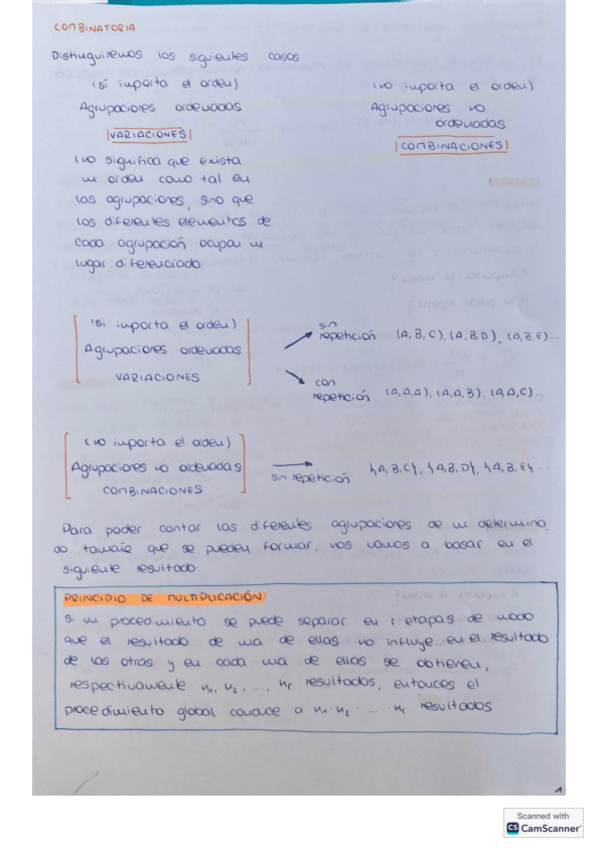 COMBINATORIA
Distinguiremos los siguientes casos:
(sí importa el orden)
Agrupaciones ordenadas
VARIACIONES
(no significa que exista
un orden como tal en
las agrupaciones, sino que
los diferentes elementos de
cada agrupación ocupan un
lugar diferenciado.
(no importa el orden)
Agrupaciones no
ordenadas
COMBINACIONES
(sí importa el orden)
Agrupaciones ordenadas
VARIACIONES
sin
repetición (A, B, C), (A, B, D), (A, B, E)...
con
repetición (A, A, A), (A, A, B), (A, A, C)...
(no importa el orden)
Agrupaciones no ordenadas
COMBINACIONES
sin repetición {A, B, C}, {A, B, D}, {A, B, E}, ...
Para poder contar las diferentes agrupaciones de un determina
do tamaño que se pueden formar, nos vamos a basar en el
siguiente resultado:
PRINCIPIO DE MULTIPLICACIÓN
Si un procedimiento se puede separar en r etapas de modo
que el resultado de una de ellas no influye en el resultado
de las otras y en cada una de ellas se obtienen,
respectivamente n₁, n₂, ..., nᵣ resultados, entonces el
procedimiento global conduce a n₁·n₂· ... ·nᵣ resultados
1
Scanned with
CS CamScanner